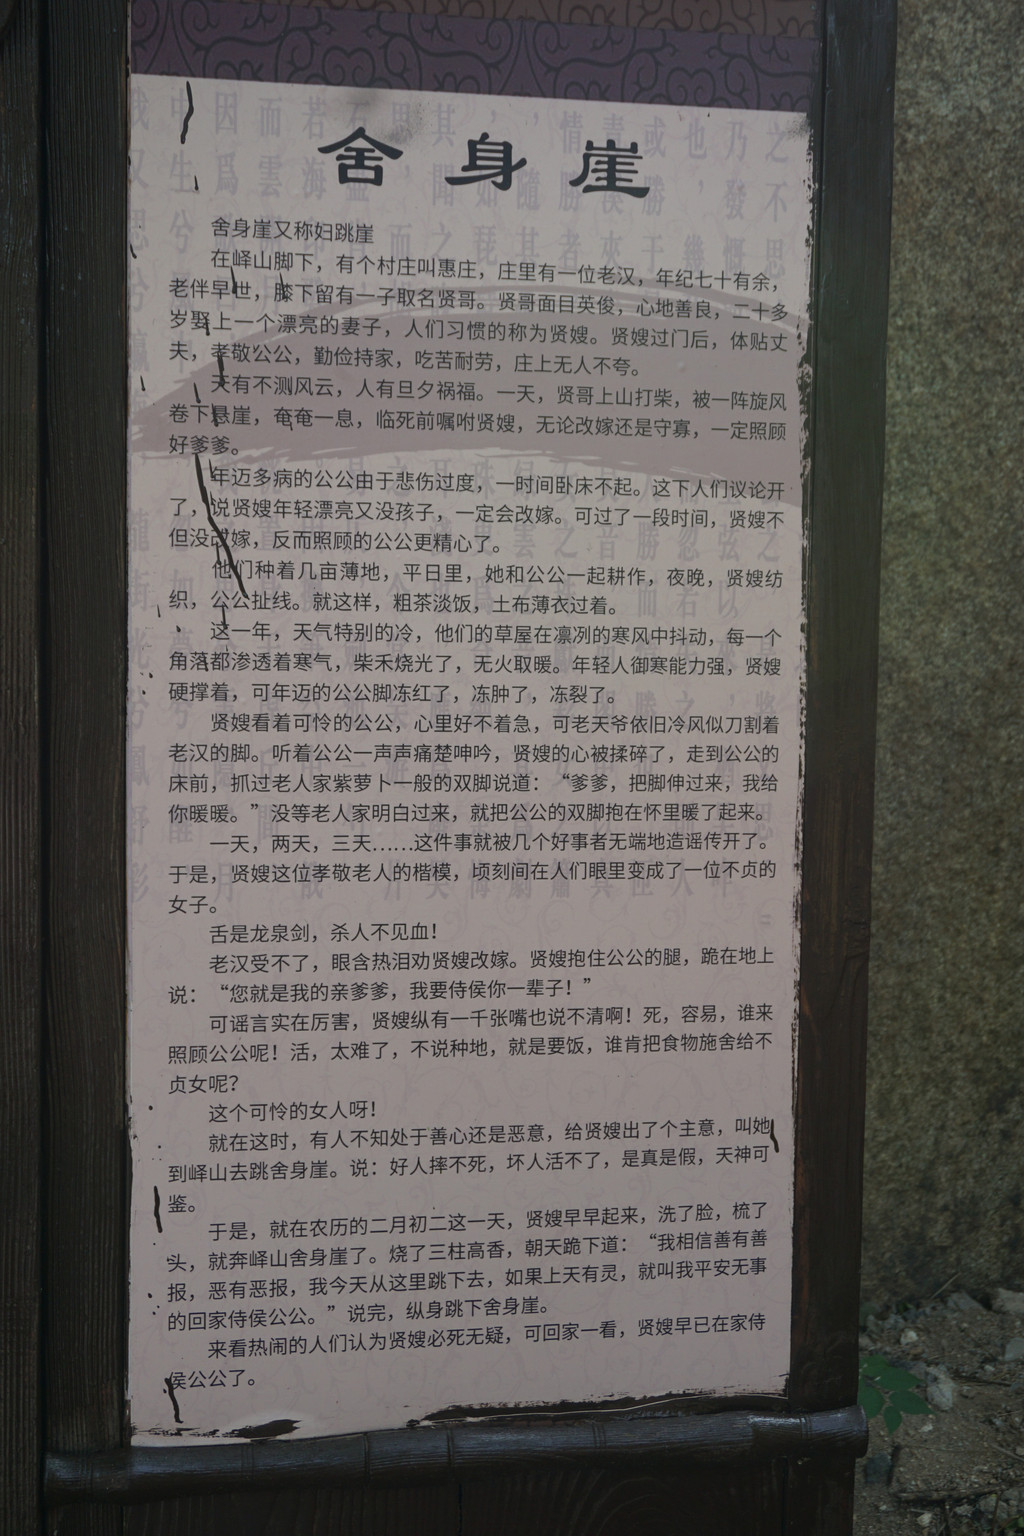 舍身崖
舍身崖又称妇跳崖
在峄山脚下，有个村庄叫惠庄，庄里有一位老汉，年纪七十有余，
老伴早世，膝下留有一子取名贤哥。贤哥面目英俊，心地善良，二十多
岁娶上一个漂亮的妻子，人们习惯的称为贤嫂。贤嫂过门后，体贴丈
夫，孝敬公公，勤俭持家，吃苦耐劳，庄上无人不夸。
天有不测风云，人有旦夕祸福。一天，贤哥上山打柴，被一阵旋风
卷下悬崖，奄奄一息，临死前嘱咐贤嫂，无论改嫁还是守寡，一定照顾
好爹爹。
年迈多病的公公由于悲伤过度，一时间卧床不起。这下人们议论开
了，说贤嫂年轻漂亮又没孩子，一定会改嫁。可过了一段时间，贤嫂不
但没改嫁，反而照顾的公公更精心了。
他们种着几亩薄地，平日里，她和公公一起耕作，夜晚，贤嫂纺
织，公公扯线。就这样，粗茶淡饭，土布薄衣过着。
这一年，天气特别的冷，他们的草屋在凛冽的寒风中抖动，每一个
角落都渗透着寒气，柴禾烧光了，无火取暖。年轻人御寒能力强，贤嫂
硬撑着，可年迈的公公脚冻红了，冻肿了，冻裂了。
贤嫂看着可怜的公公，心里好不着急，可老天爷依旧冷风似刀割着
老汉的脚。听着公公一声声痛楚呻吟，贤嫂的心被揉碎了，走到公公的
床前，抓过老人家紫萝卜一般的双脚说道：“爹爹，把脚伸过来，我给
你暖暖。”没等老人家明白过来，就把公公的双脚抱在怀里暖了起来。
一天，两天，三天……这件事就被几个好事者无端地造谣传开了。
于是，贤嫂这位孝敬老人的楷模，顷刻间在人们眼里变成了一位不贞的
女子。
舌是龙泉剑，杀人不见血！
老汉受不了，眼含热泪劝贤嫂改嫁。贤嫂抱住公公的腿，跪在地上
说：“您就是我的亲爹爹，我要侍侯你一辈子！”
可谣言实在厉害，贤嫂纵有一千张嘴也说不清啊！死，容易，谁来
照顾公公呢！活，太难了，不说种地，就是要饭，谁肯把食物施舍给不
贞女呢？
这个可怜的女人呀！
就在这时，有人不知处于善心还是恶意，给贤嫂出了个主意，叫她
到峄山去跳舍身崖。说：好人摔不死，坏人活不了，是真是假，天神可
鉴。
于是，就在农历的二月初二这一天，贤嫂早早起来，洗了脸，梳了
头，就奔峄山舍身崖了。烧了三柱高香，朝天跪下道：“我相信善有善
报，恶有恶报，我今天从这里跳下去，如果上天有灵，就叫我平安无事
的回家侍侯公公。”说完，纵身跳下舍身崖。
来看热闹的人们认为贤嫂必死无疑，可回家一看，贤嫂早已在家侍
侯公公了。